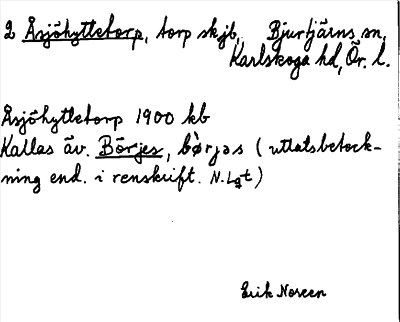 2 Åsjöhyttetorp, torp skjb, Bjurtjärns sn,
Karlskoga hd, Ör. l.
Åsjöhyttetorp 1900 kb
Kallas äv. Börjes, bö̀rjəs (uttalsbeteck-
ning end. i renskrift. N. Lgt)
Erik Noreen